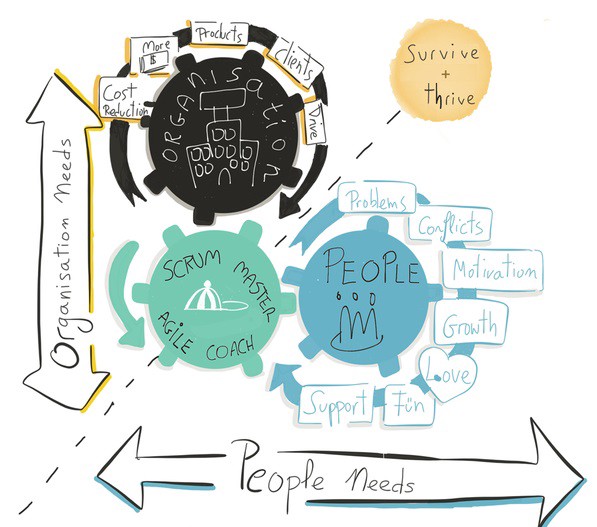 Survive
+
thrive
Products
More
$
Clients
Cost
Reduction
Drive
ORGANISation
Organisation Needs
Problems
Conflicts
Motivation
Growth
Love
Fun
Support
PEOPLE
SCRUM MASTER
AGILE COACH
People Needs